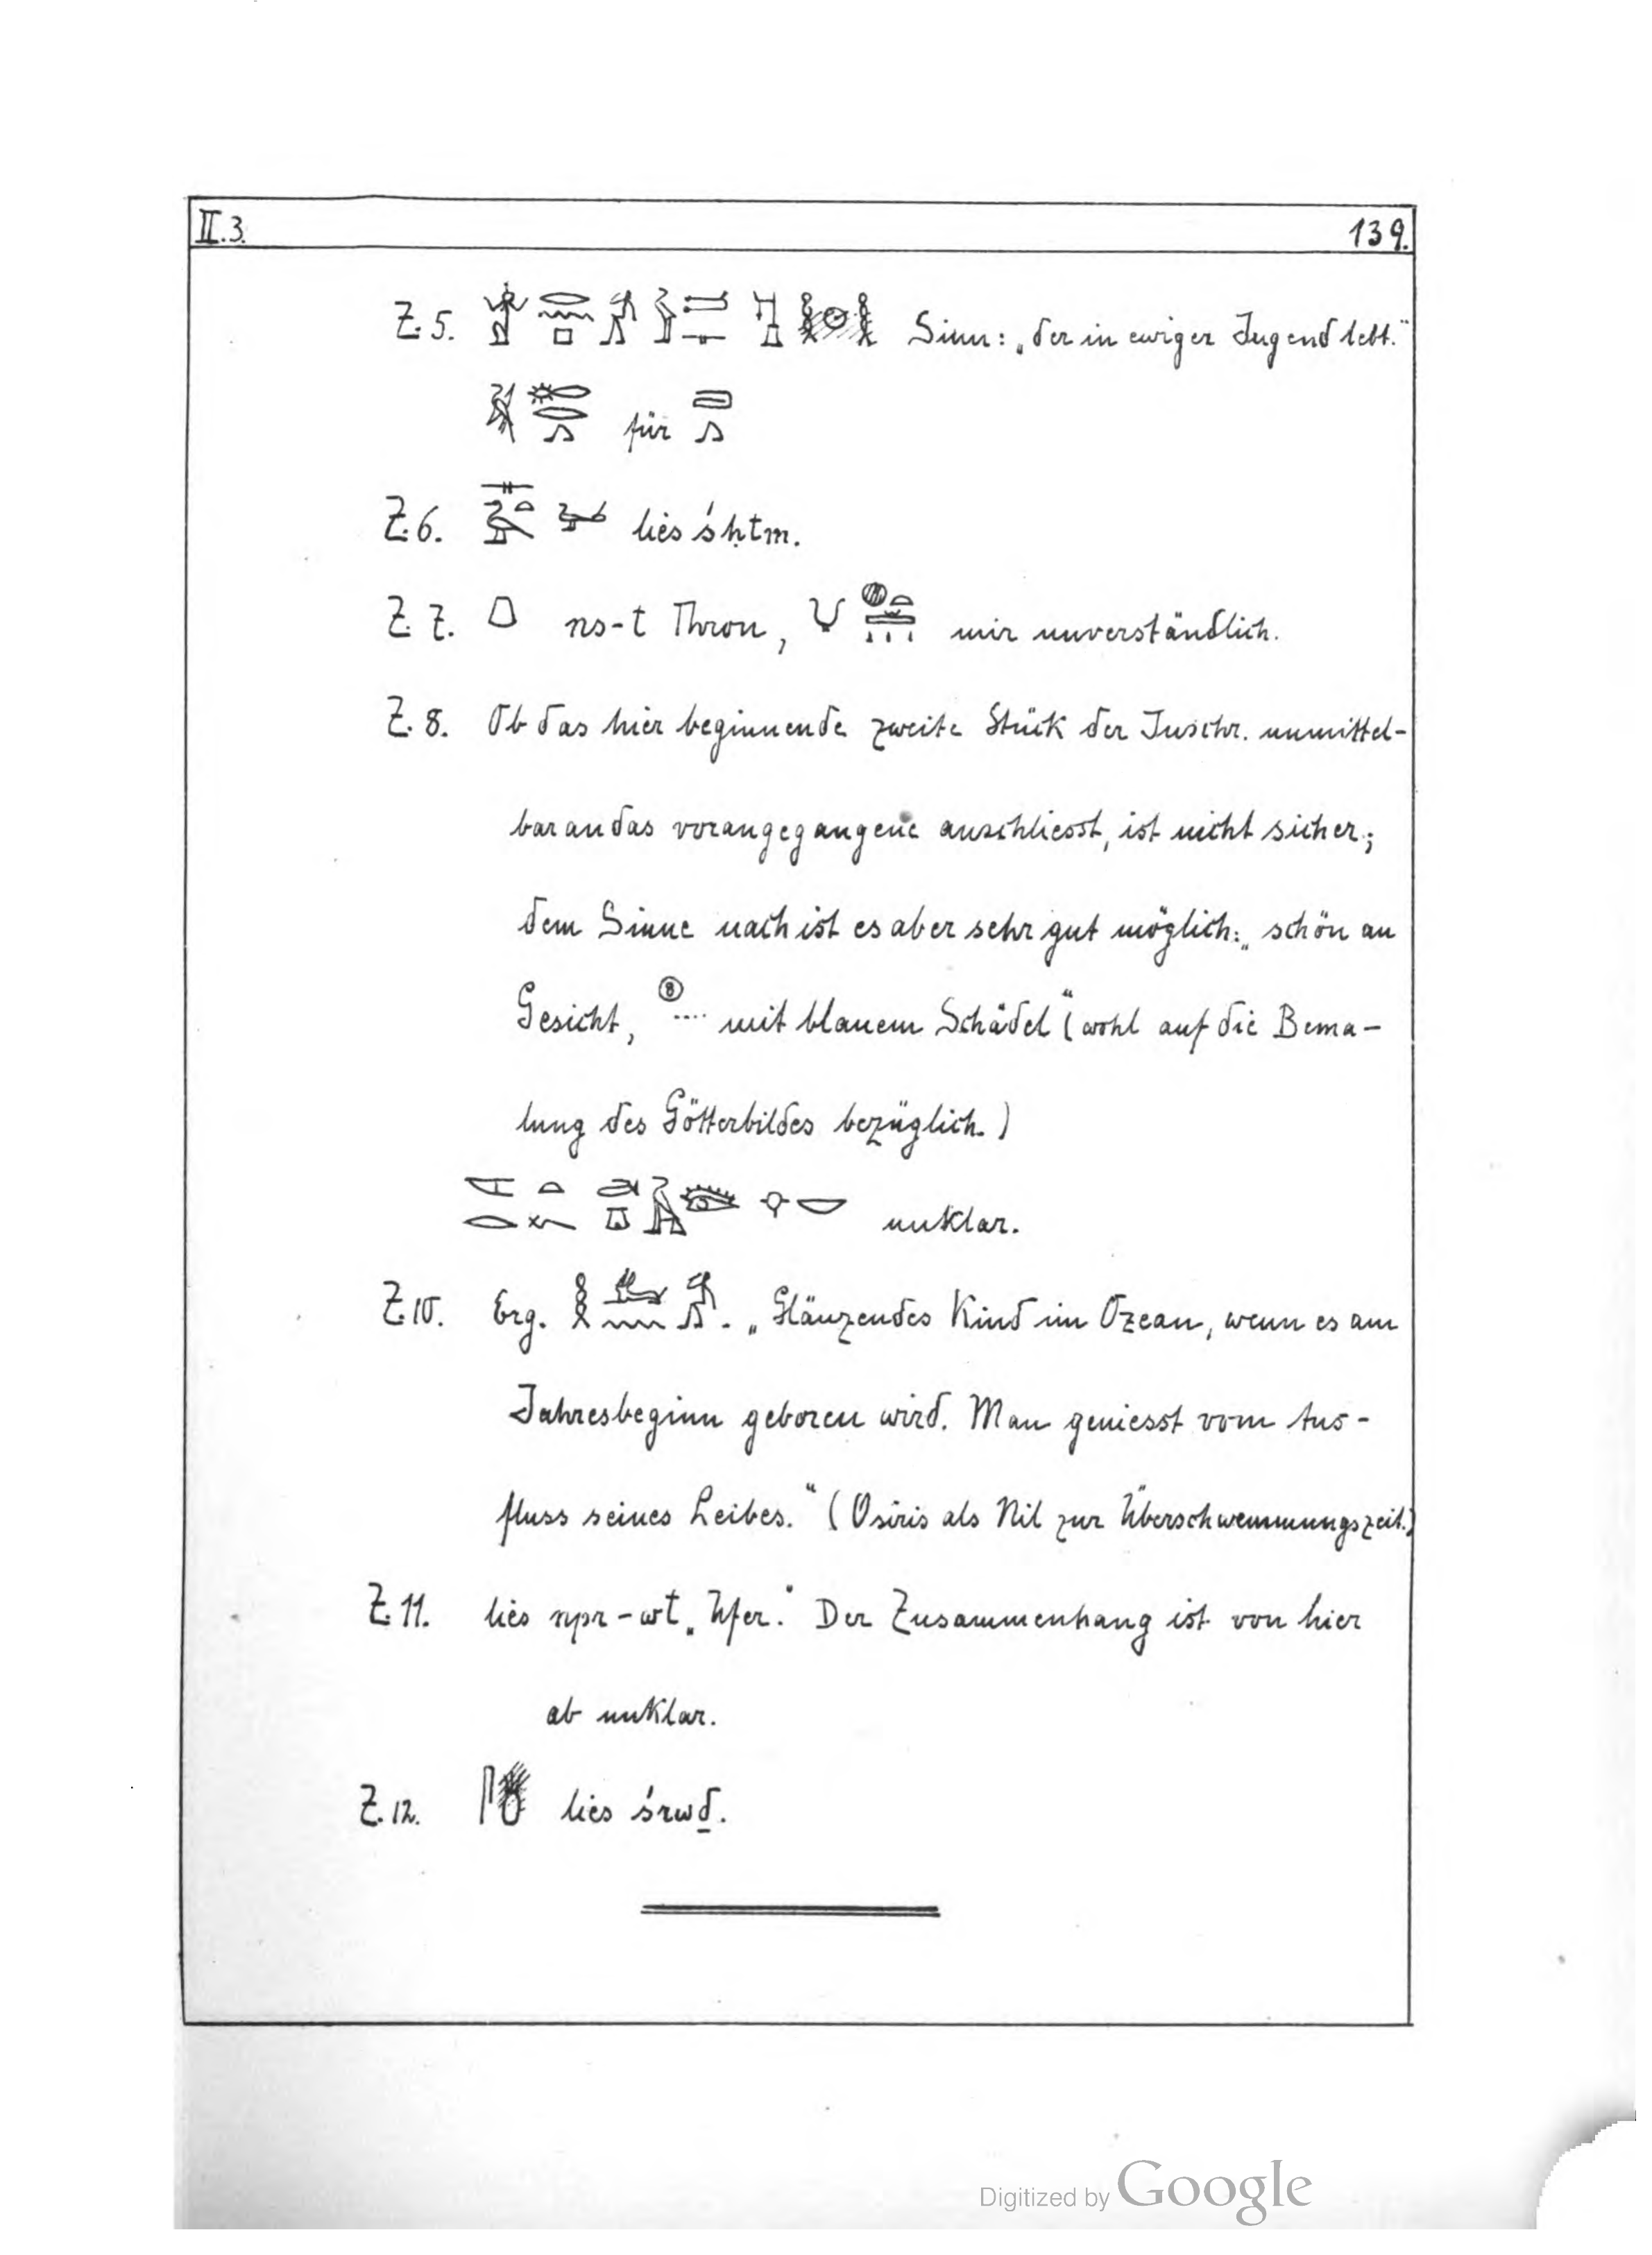 II.3. 139.
Z.5. Sinn: „der in ewiger Jugend lebt."
für
Z.6. lies śḥtm.
Z.7. ns-t Thron, mir unverständlich.
Z.8. Ob das hier beginnende zweite Stück der Inschr. unmittel-
bar an das vorangegangene anschliesst, ist nicht sicher;
dem Sinne nach ist es aber sehr gut möglich: „schön an
Gesicht, ⑧ .... mit blauem Schädel" (wohl auf die Bema-
lung des Götterbildes bezüglich.)
unklar.
Z.10. Erg. . „Glänzendes Kind im Ozean, wenn es am
Jahresbeginn geboren wird. Man geniesst vom Aus-
fluss seines Leibes." (Osiris als Nil zur Überschwemmungszeit.)
Z.11. lies npr-wt „Ufer." Der Zusammenhang ist von hier
ab unklar.
Z.12. lies śrwḏ.
Digitized by Google